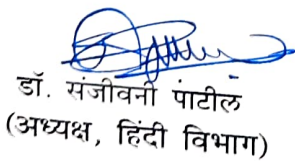 डॉ. संजीवनी पाटील
(अध्यक्ष, हिंदी विभाग)